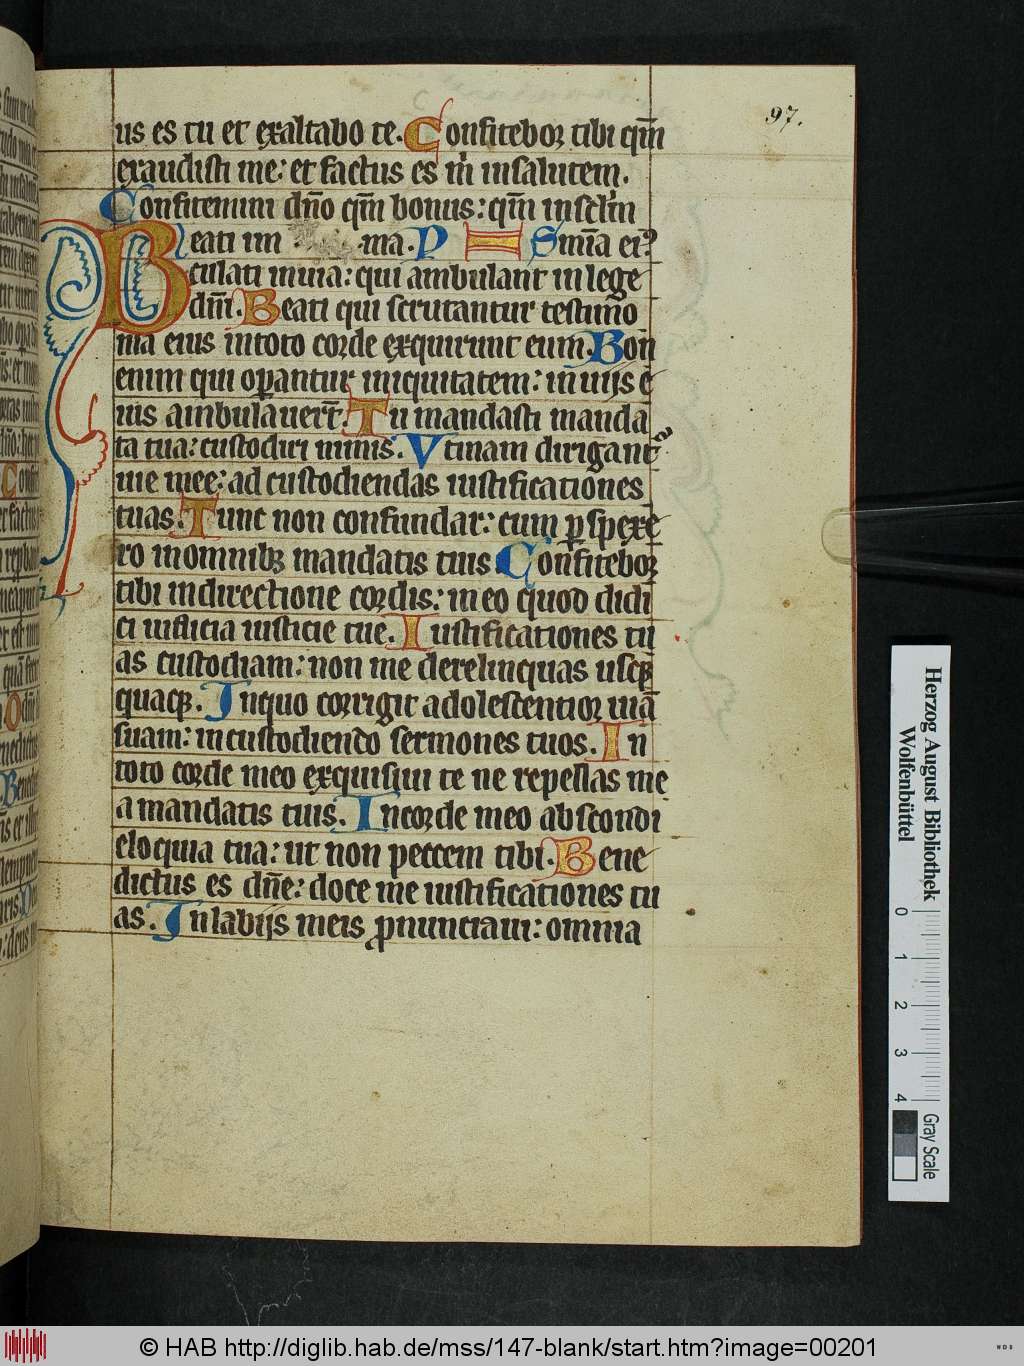 97.
us es tu et exaltabo te. Confitebor tibi qm̄
exaudisti me: et factus es m̄ insalutem.
Confitemini dn̄o qm̄ bonus: qm̄ inscl̄m
Beati im ma. P Smīa ei?
culati inuia: qui ambulant in lege
dn̄i. Beati qui scrutantur testimo
nia eius intoto corde exquirunt eum. Non
enim qui operantur iniquitatem: in uijs e
ius ambulauert̄. Tu mandasti manda
ta tua: custodiri nimis. Vtinam dirigant̉
uie mee: ad custodiendas iustificationes
tuas. Tunc non confundar: cum ꝑspexe
ro inomnibꝫ mandatis tuis Confitebor
tibi indirectione cordis: in eo quod didi
ci iudicia iusticie tue. Iustificationes tu
as custodiam: non me derelinquas usqꝫ
quaqꝫ. Inquo corrigit adolescentior uiā
suam: in custodiendo sermones tuos. In
toto corde meo exquisiui te ne repellas me
a mandatis tuis. Incorde meo abscondi
eloquia tua: ut non peccem tibi. Bene
dictus es dn̄e: doce me iustificationes tu
as. In labijs meis ꝓnunciaui: omnia
Herzog August Bibliothek
Wolfenbüttel
0 1 2 3 4
Gray Scale
© HAB http://diglib.hab.de/mss/147-blank/start.htm?image=00201